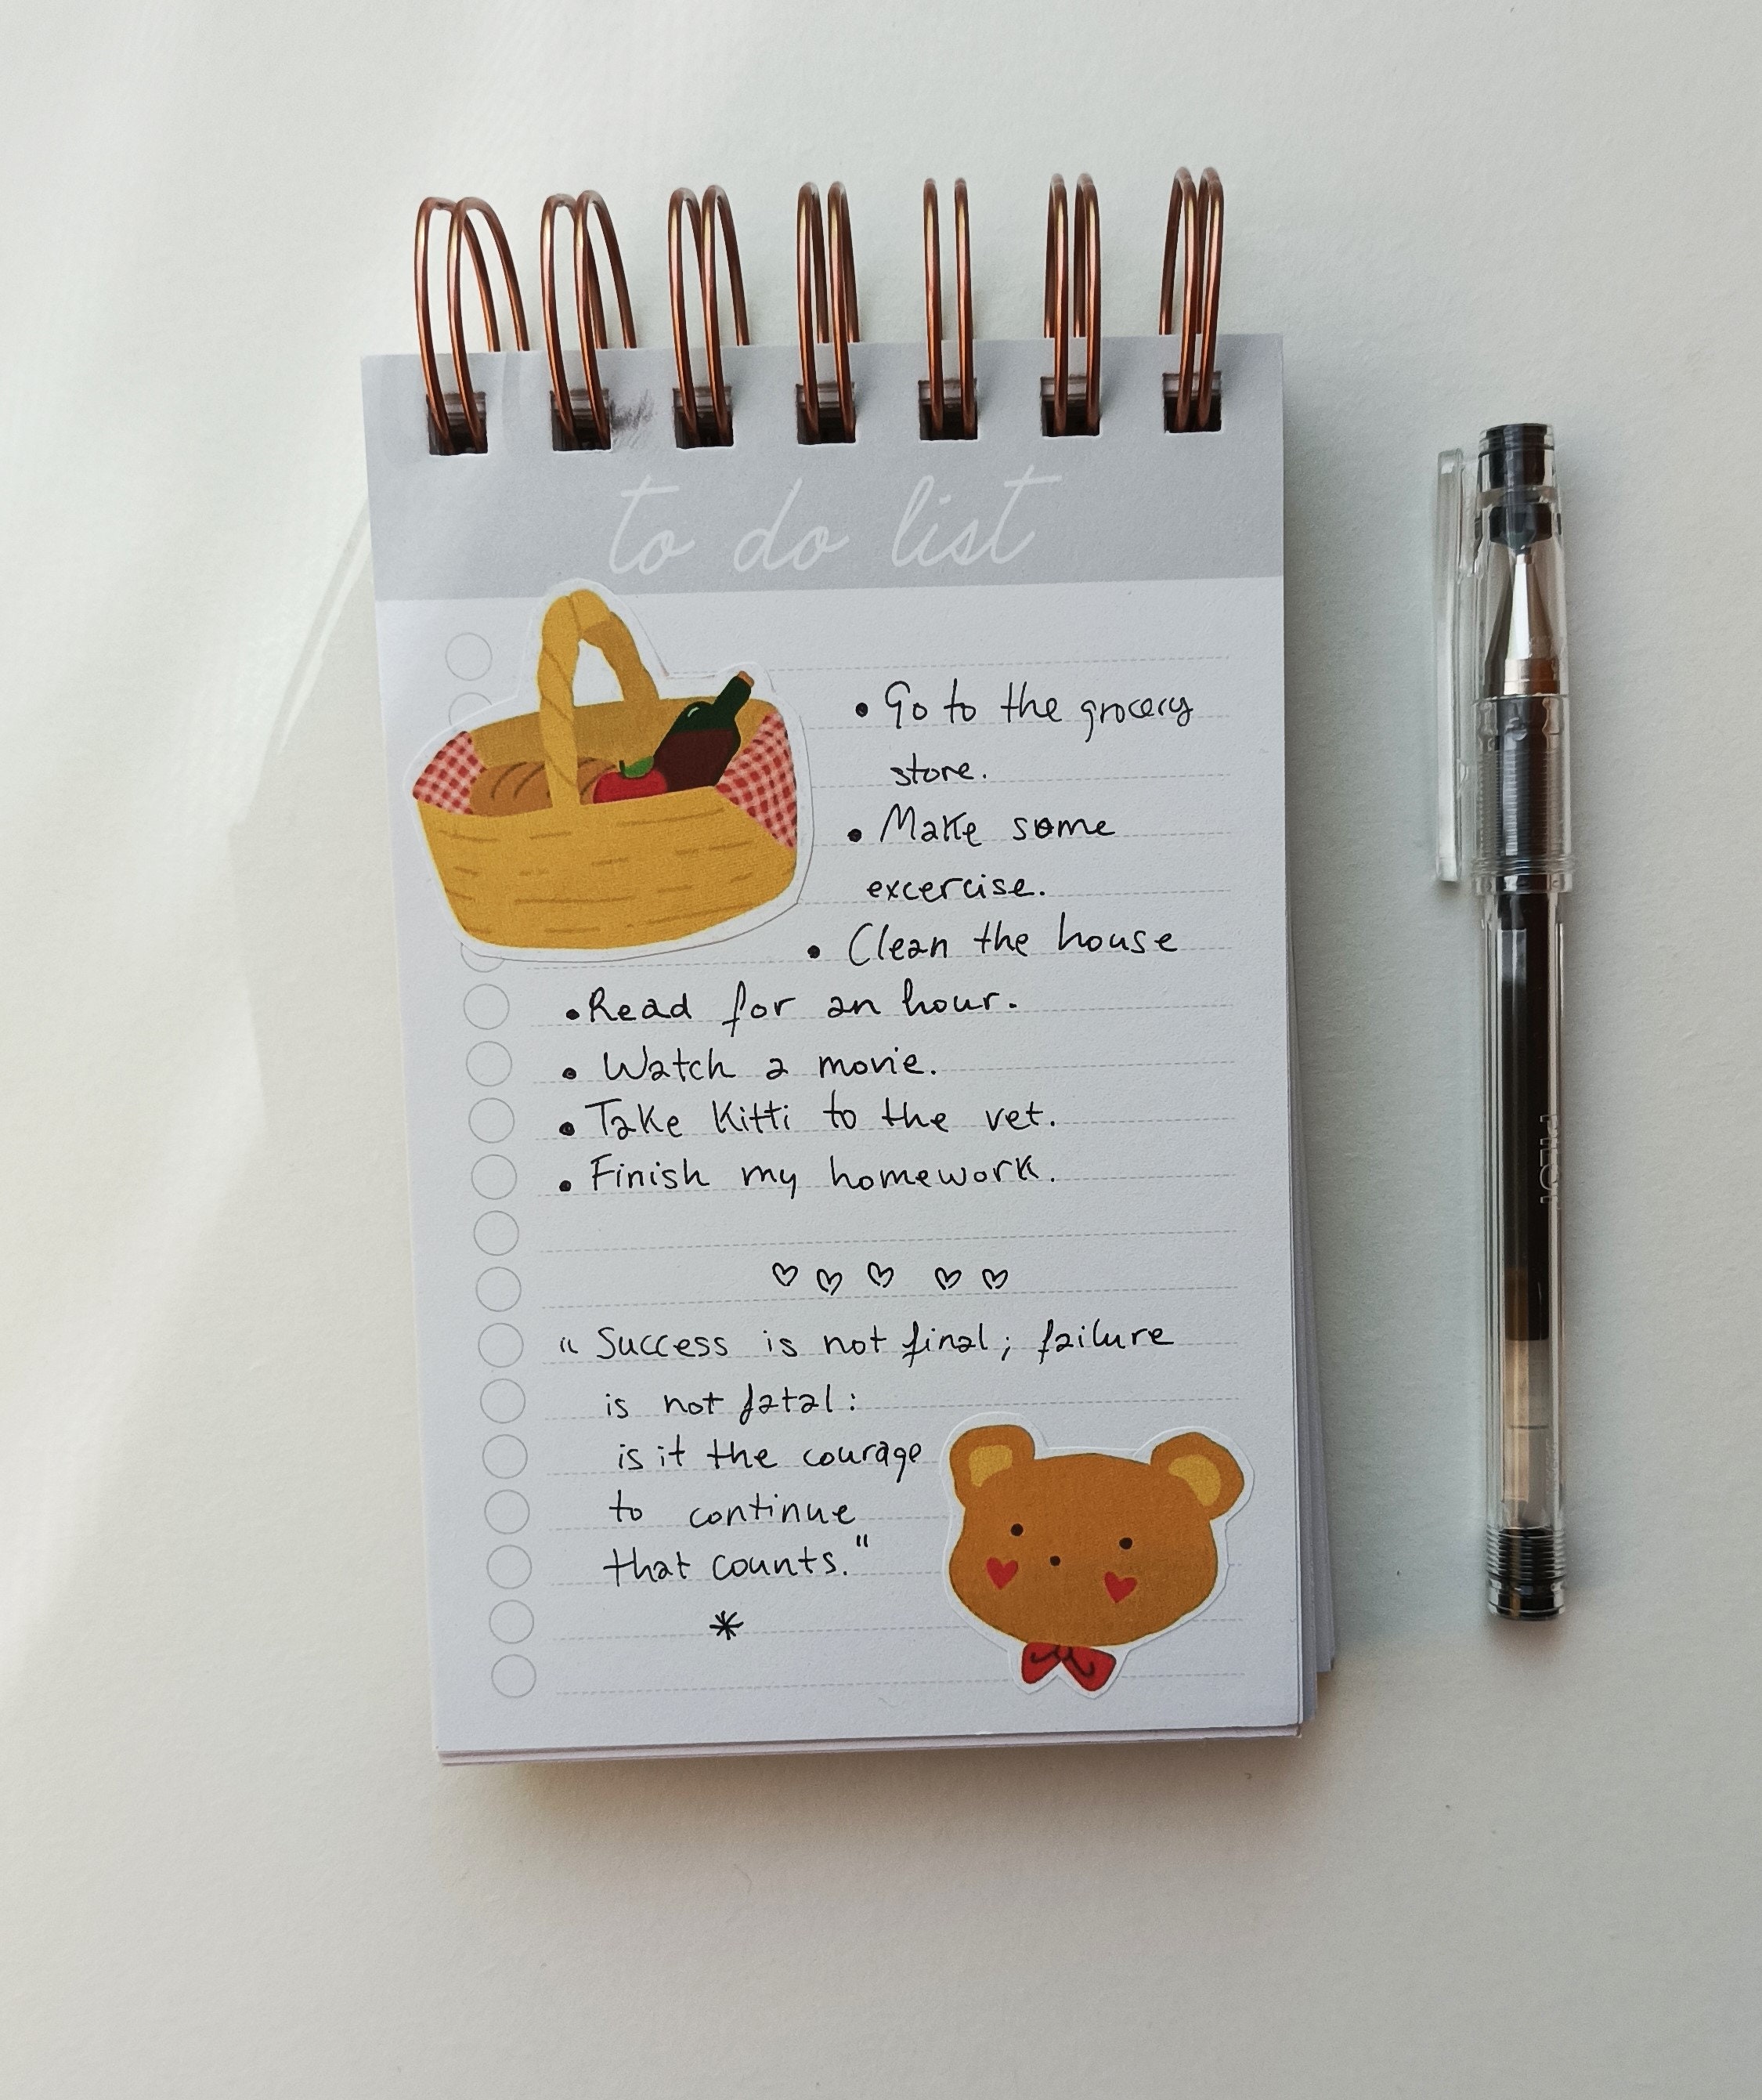 to do list
• Go to the grocery
store.
• Make some
excercise.
• Clean the house
• Read for an hour.
• Watch a movie.
• Take Kitti to the vet.
• Finish my homework.
♡ ♡ ♡ ♡ ♡
“ Success is not final; failure
is not fatal:
is it the courage
to continue
that counts."
*
PILOT